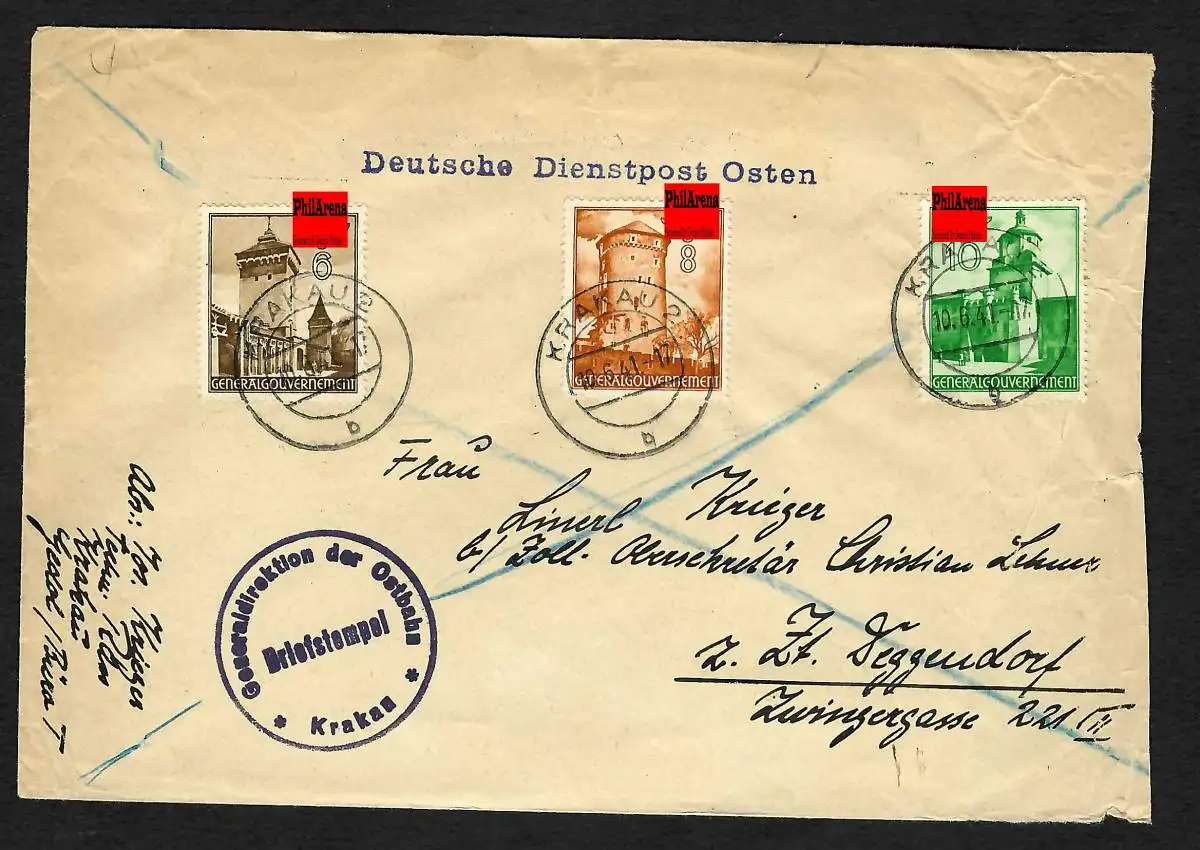 Deutsche Dienstpost Osten
PhilArena
6
GENERALGOUVERNEMENT
KRAKAU 2
b
PhilArena
8
GENERALGOUVERNEMENT
KRAKAU 2
10.6.41.-17
b
PhilArena
10
GENERALGOUVERNEMENT
KRAKAU
10.6.41.-17
g
Frau
Linerl Krieger
b/ Zoll-Obersekretär Christian Lehner
z. Zt. Deggendorf
Zwingergasse 221 III
Generaldirektion der Ostbahn
Briefstempel
* Krakau *
Abs.: Krieger
Krakau